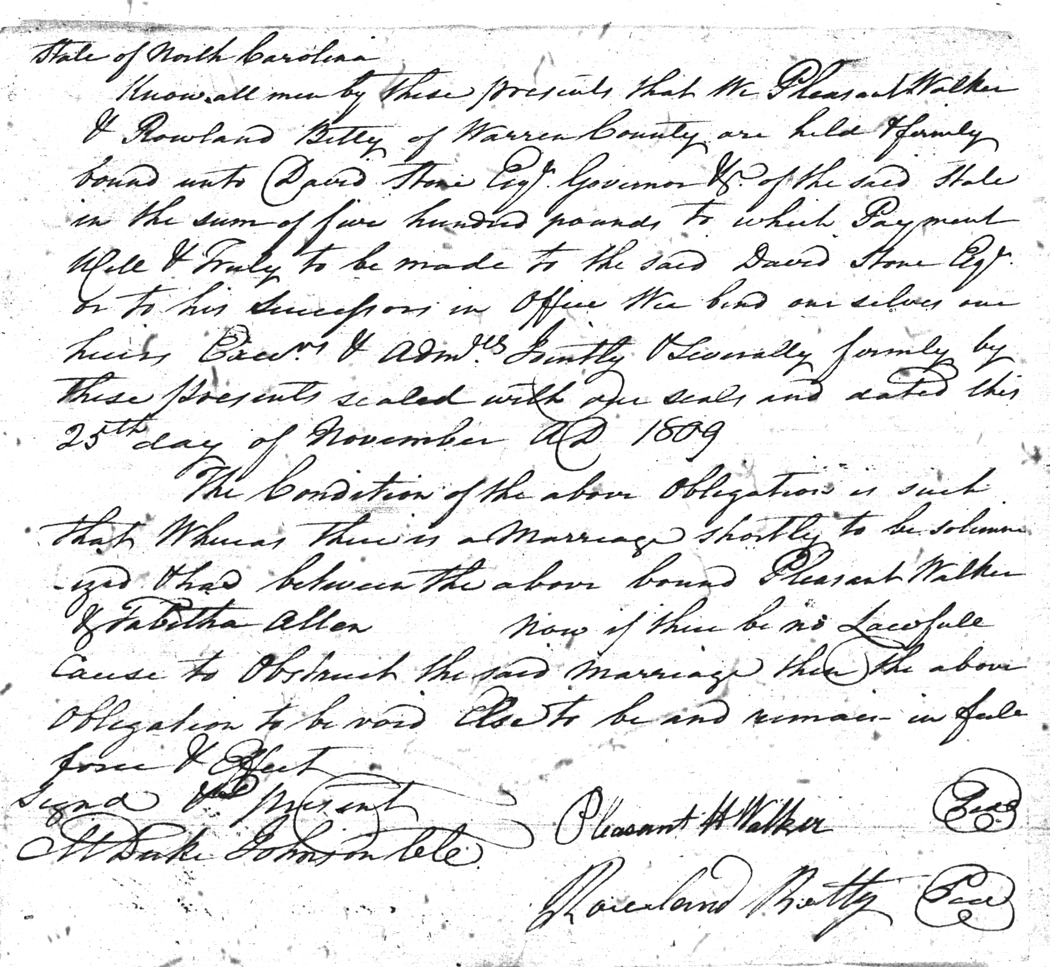 State of North Carolina
Know all men by these presents that We Pleasant Walker
& Rowland Betty of Warren County are held & firmly
bound unto David Stone Esqr. Governor &c. of the said State
in the sum of five hundred pounds to which Payment
Well & Truly to be made to the said David Stone Esqr.
or to his Successors in Office Wee bind our selves our
heirs Execrs & Admrs Jointly & Severally firmly by
these presents sealed with our seals and dated this
25th day of November AD 1809
The Condition of the above Obligation is such
that Whereas there is a Marriage shortly to be solemn
-ized & had between the above bound Pleasant Walker
& Tabitha Allen Now if there be no Lawfull
Cause to Obstruct the said marriage then the above
Obligation to be void Else to be and remain in full
force & Effect
Signd present
M Duke Johnson
Pleasant H Walker Seal
Rowland Betty Seal